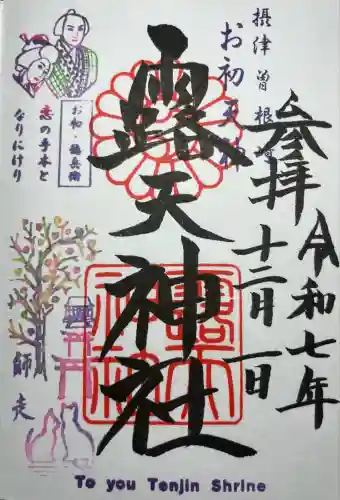 摂津 曽根崎
お初天神
参拝
令和七年
十二月一日
露天神社
お初 徳兵衛
恋の手本と
なりにけり
師走
To you Tenjin Shrine